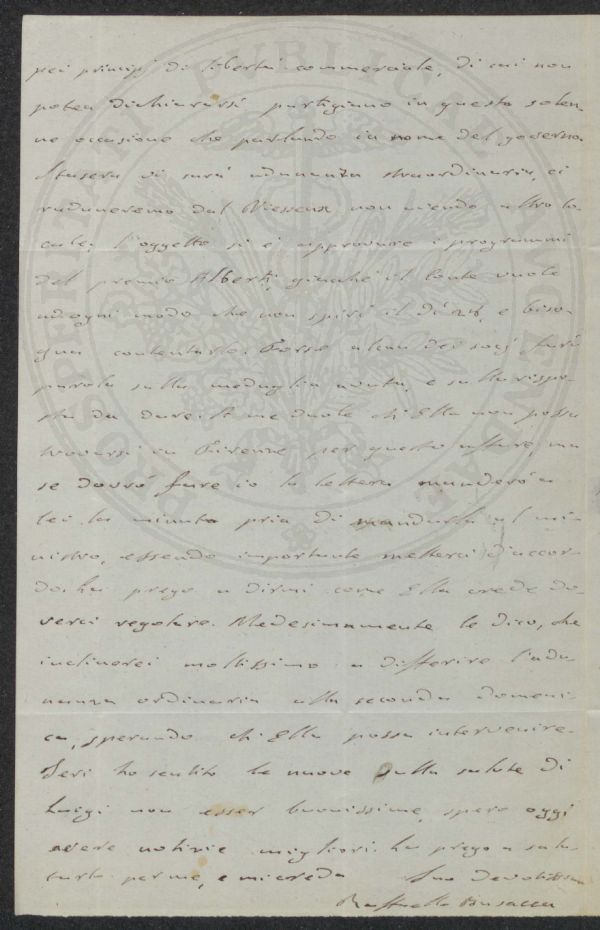 pei principj di libertà commerciale, di cui non
potea dichiararsi partigiano in questa solen-
ne occasione che parlando in nome del governo.
Stasera vi sarà adunanza straordinaria, ci
raduneremo dal Viesseux non avendo altro lo-
cale; l'oggetto si è approvare i programmi
del premio Alberti, giacchè il Conte vuole
ad ogni modo che non spiri il dì 28, e biso-
gna contentarlo. Forse alcun dei socj farà
parola sulla medaglia avuta, e sulla rispo-
sta da darsi. A me duole ch'Ella non possa
trovarsi in Firenze per questo affare, ma
se dovrò fare io la lettera manderò a
lei la minuta pria di mandarla al mi-
nistro, essendo importante metterci d'accor-
do. La prego a dirmi come Ella crede do-
verci regolare. Medesimamente le dico, che
inclinerei moltissimo a differire l'adu-
nanza ordinaria alla seconda domeni-
ca, sperando ch'Ella possa intervenire.
Ieri ho sentito le nuove sulla salute di
Luigi non esser buonissime, spero oggi
avere notizie migliori. La prego a salu-
tarlo per me, e mi creda Suo devotissimo
Raffaello Busacca
PROSPERITATI PUBLICAE AUGENDAE